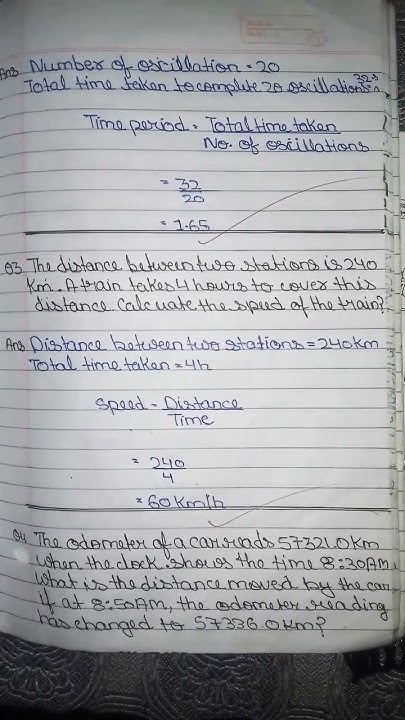 Ans Number of oscillation = 20
Total time taken to complete 20 oscillations = 32s
Time period = Total time taken
No. of oscillations
= 32
20
= 1.6s
Q3 The distance between two stations is 240
Km. A train takes 4 hours to cover this
distance. Calcuate the speed of the train?
Ans Distance between two stations = 240km
Total time taken = 4h
Speed = Distance
Time
= 240
4
= 60 Km/h
Q4 The odometer of a car reads 57321.0 Km
when the clock shows the time 8:30AM.
What is the distance moved by the car,
if at 8:50AM, the odometer reading
has changed to 57336.0 Km?